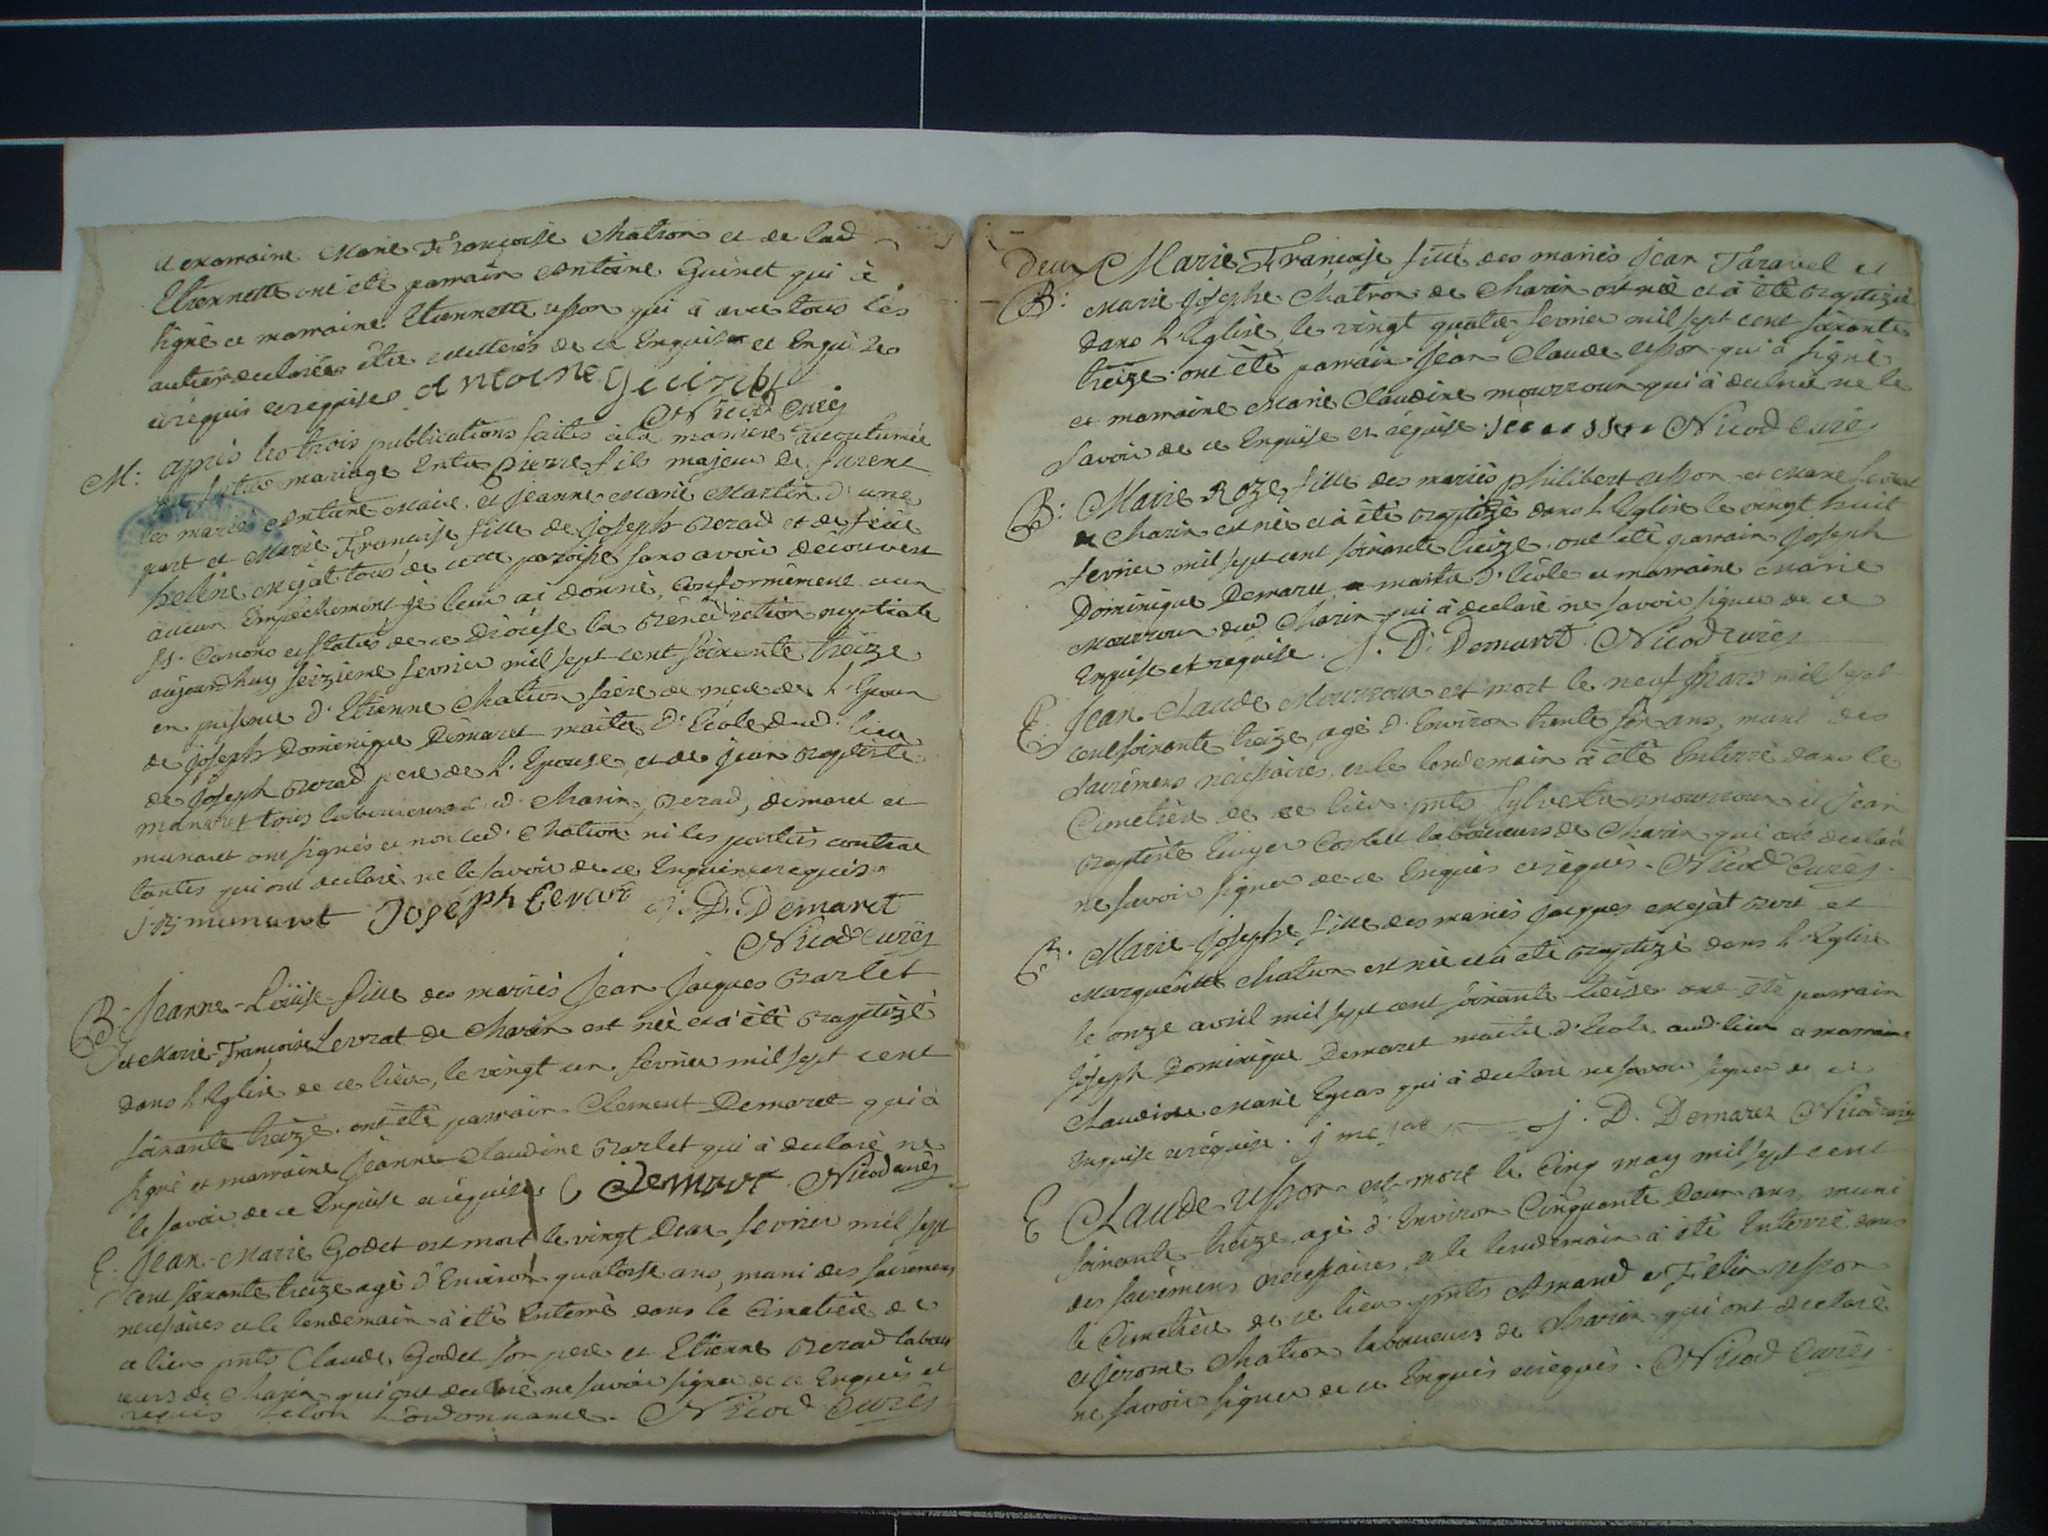 et marraine Marie Françoise Chatron et de lad
Etiennette ont été parrain Antoine Guinet qui à
signé et marraine Etiennette usson qui à avec tous les
autres declarées être illitterés de ce Enquis et Enquises
et requis et requises Antoine Guinet
Nicod Curés
M: après les trois publications faites à la maniere accoutumée
futur mariage Entre Pierre fils majeur de furent
les mariés Antoine Maire et Jeanne Marie Martin d'une
part et Marie Françoise fille de Joseph Berad et de feüe
helène Mejat tous de cette paroisse sans avoir découvert
aucun Empêchement je leur ai donné, conformément aux
SS. Canons et statuts de ce Diocèse la Bénédiction nuptiale
aujourd'huy seizieme fevrier mil sept cent soixante treize
en présence d'Etienne Chatron frère de mere de l'Epoux
de Joseph Dominique Démaret maitre d'Ecole dud. lieu
de Joseph Berad pere de l'Epouse, et de Jean Baptiste
munaret tous laboureurs aud. Charin, Berad, démaret et
munaret ont signés et non led. Chatron ni les parties contrac
tantes qui ont declaré ne le savoir de ce Enquis et requis
J.B munaret Joseph Berard J. D. Demaret
Nicod Curés
B: Jeanne-Loüise fille des mariés Jean Jacques Barlet
et Marie-Françoise Levrat de Charin est née et à été Baptizé
dans l'Eglise de ce lieu, le vingt un fevrier mil sept cent
soixante treize. ont été parrain Clement Demaret qui à
signé et marraine Jeanne Claudine Barlet qui à declaré ne
le savoir de ce Enquise et requise C Demaret Nicod curés
E. Jean-Marie Godet est mort le vingt Deux fevrier mil sept
cent soixante treize agé d'Environ quatorse ans, muni des sacrémens
necessaires et le lendemain à été Enterré dans le Cimetière de
ce lieu pnts Claude Godet son pere et Etienne Berad labou
reurs de Charin qui ont declaré ne savoir signer de ce Enquis et
requis selon l'ordonnance. Nicod Curés
Deux Marie Françoise fille des mariés Jean Taravel et
B: Marie Josephe Chatron de Charin est née et à été Baptizé
dans l'Eglise, le vingt quatre fevrier mil sept cent soixante
treize. ont été parrain Jean Claude usson qui à signé
et marraine Marie Claudine mourroux qui à declaré ne le
savoir de ce Enquise et requise. Nicod Curés
B: Marie Roze fille des mariés philibert usson et Marie
de Charin est née et à été Baptizé dans l'Eglise le vingt huit
fevrier mil sept cent soixante treize. ont été parrain Joseph
Dominique Demaret maitre d'école et marraine Marie
Mourroux dud Charin qui à declaré ne savoir signer de ce
Enquise et requise. J. D. Demaret Nicod curés
E. Jean Claude Mourroux est mort le neuf Mars mil sept
cent soixante treize, agé d'Environ trente six ans, muni des
sacrémens nécessaires, et le lendemain à été Enterré dans le
Cimetière de ce lieu pnts Sylvestre mourroux et Jean
Baptiste laboureurs de Charin qui ont declaré
ne savoir signer de ce Enquis et requis. Nicod Curés
B. Marie-Josephe fille des mariés Jacques Mejat Bert et
Marguéritte Chatron est née et à été Baptizé dans l'Eglise
le onze avril mil sept cent soixante treise ont été parrain
Joseph Dominique Demaret maitre d'Ecole aud. lieu et marraine
Claudine Marie qui à declaré ne savoir signer de ce
Enquise et requise. j mejat J. D. Demaret Nicod curés
E Claude usson est mort le Cinq may mil sept cent
soixante-treize, agé d'Environ Cinquante Deux ans, muni
des sacrémens necessaires, et le lendemain à été Enterré dans
le Cimetière de ce lieu pnts Amand et Félix usson
et Jerome Chatron laboureurs de Charin qui ont declaré
ne savoir signer de ce Enquis et requis. Nicod Curés